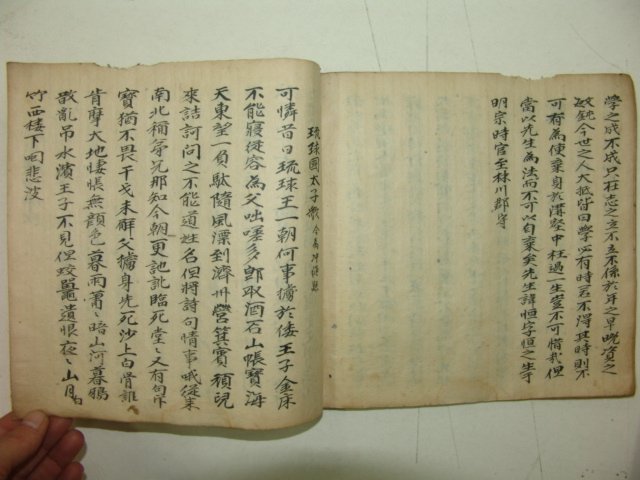 學之成不成只在志之立不立不係於年之早晚資之
敏鈍今世之人大抵皆曰學必有時若不得其時則不
可有為使棄身於溝壑中枉過一生豈不可惜哉但
當以先生為法而不可以自棄矣先生諱恒字恒之生于
明宗時官至林川郡守
琉球國太子歌
可憐昔日琉球王一朝何事擄於倭王子金床
不能寢從容為父咄嗟多郎取酒石山帳寶海
天東望一負駄隨風漂到濟州營箕賓領兒
來詰訶問之不能道姓名但將詩句情事哦從來
南北稱等兄那知今朝更訛訿臨死堂〻又有句
寶猶不畏干戈未解父擄身先死沙上白骨誰
肯摩大地悽帳無顏色暮雨蕭〻暗山河暮鴉
散亂吊水濱王子不見但蛟鼉遺恨夜〻山月白
竹西樓下咽悲波